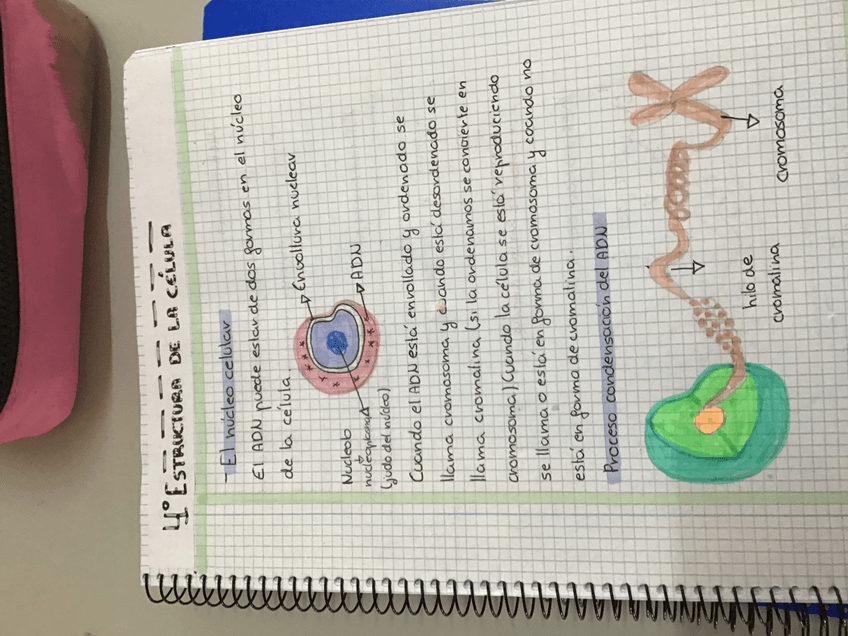 4º ESTRUCTURA DE LA CÉLULA
- El núcleo celular
El ADN puede estar de dos formas en el núcleo
de la célula.
Envoltura nuclear
ADN
Nucleolo
nucleoplasma
(judo del núcleo)
Cuando el ADN está enrollado y ordenado se
llama cromosoma y cuando está desordenado se
llama cromatina (si la ordenamos se concierte en
cromosoma) Cuando la célula se está reproduciendo
se llama o está en forma de cromosoma y cuando no
está en forma de cromatina.
Proceso condensación del ADN
hilo de
cromatina
cromosoma